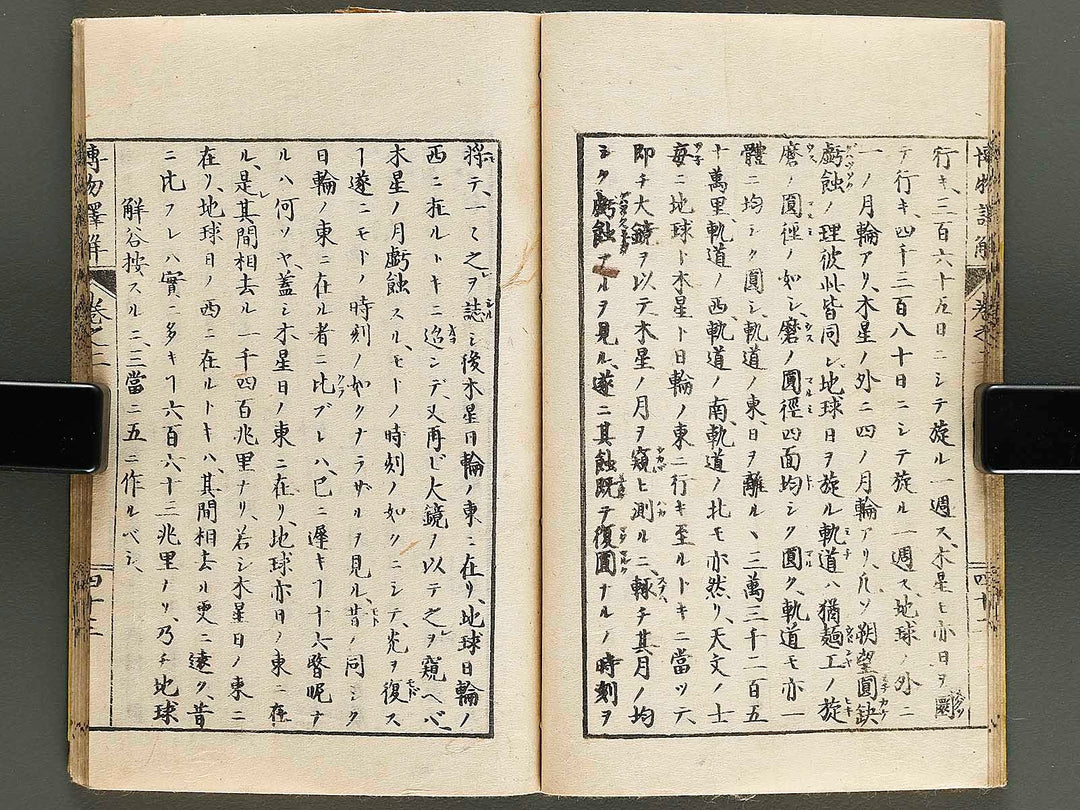 行キ、三百六十五日ニシテ旋ル一週ス、木星モ亦日ヲ
テ行キ、四千三百八十日ニシテ旋ル一週ス、地球ノ外ニ
一ノ月輪アリ、木星ノ外ニ四ノ月輪アリ、凡ソ朔望圓缺
虧蝕ノ理彼此皆同シ、地球日ヲ旋ル軌道ハ猶麺工ノ旋
磨ノ圓徑ノ如シ、磨ノ圓徑四面均シク圓ク、軌道モ亦一
體ニ均シク圓シ、軌道ノ東、日ヲ離ルヽ三萬三千二百五
十萬里、軌道ノ西、軌道ノ南、軌道ノ北モ亦然リ、天文ノ士
毎ニ地球ト木星ト日輪ノ東ニ行キ至ルトキニ當ツテ
即チ大鏡ヲ以テ木星ノ月ヲ窺ヒ測ルニ、輙チ其月ノ均
シク虧蝕アルヲ見ル、遂ニ其蝕既テ復圓ナルノ時刻ヲ
博物
四十二
將テ、一々之ヲ誌シ後木星日輪ノ東ニ在リ、地球日輪ノ
西ニ在ルトキニ迨ンデ、又再ビ大鏡ノ以テ之ヲ窺ヘバ
木星ノ月虧蝕スル、モトノ時刻ノ如クニシテ、光ヲ復ス
ヿ遂ニモトノ時刻ノ如クナラザルヲ見ル、昔ノ同シク
日輪ノ東ニ在ル者ニ比ブレハ、已ニ遲キヿ十六瞥呢ナ
ルハ何ソヤ、蓋シ木星日ノ東ニ在リ、地球亦日ノ東ニ在
ル、是其間相去ル一千四百兆里ナリ、若シ木星日ノ東ニ
在リ、地球日ノ西ニ在ルトキハ、其間相去ル更ニ遠ク、昔
ニ比フレハ實ニ多キヿ六百六十三兆里ノリ、乃チ地球
解谷按スルニ、三當ニ五ニ作ルベシ、
博物
卷之二
四十三